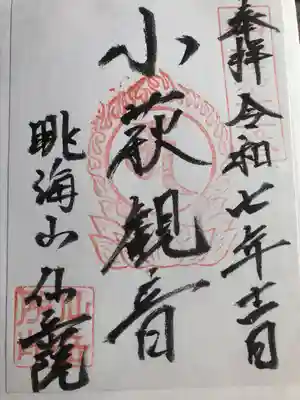 奉拝 令和七年十一月
小萩観音
眺海山 仙岳院